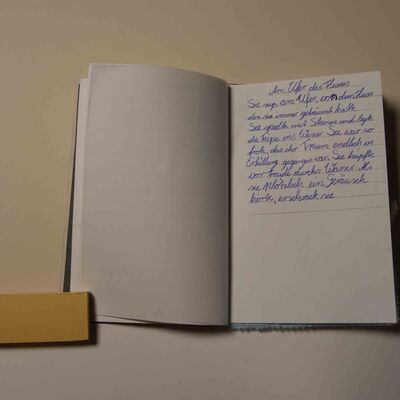 Am Ufer des Flusses
Sie saß am Ufer, von dem Fluss
den sie immer geträumt hatte.
Sie spielte mit Steinen und legte
die Füße ins Wasser. Sie war so
froh, das der Traum endlich in
Erfüllung gegangen war. Sie hüpfte
vor Freude durchs Wasser. Als
sie plötzlich ein Geräusch
hörte, erschrack sie.